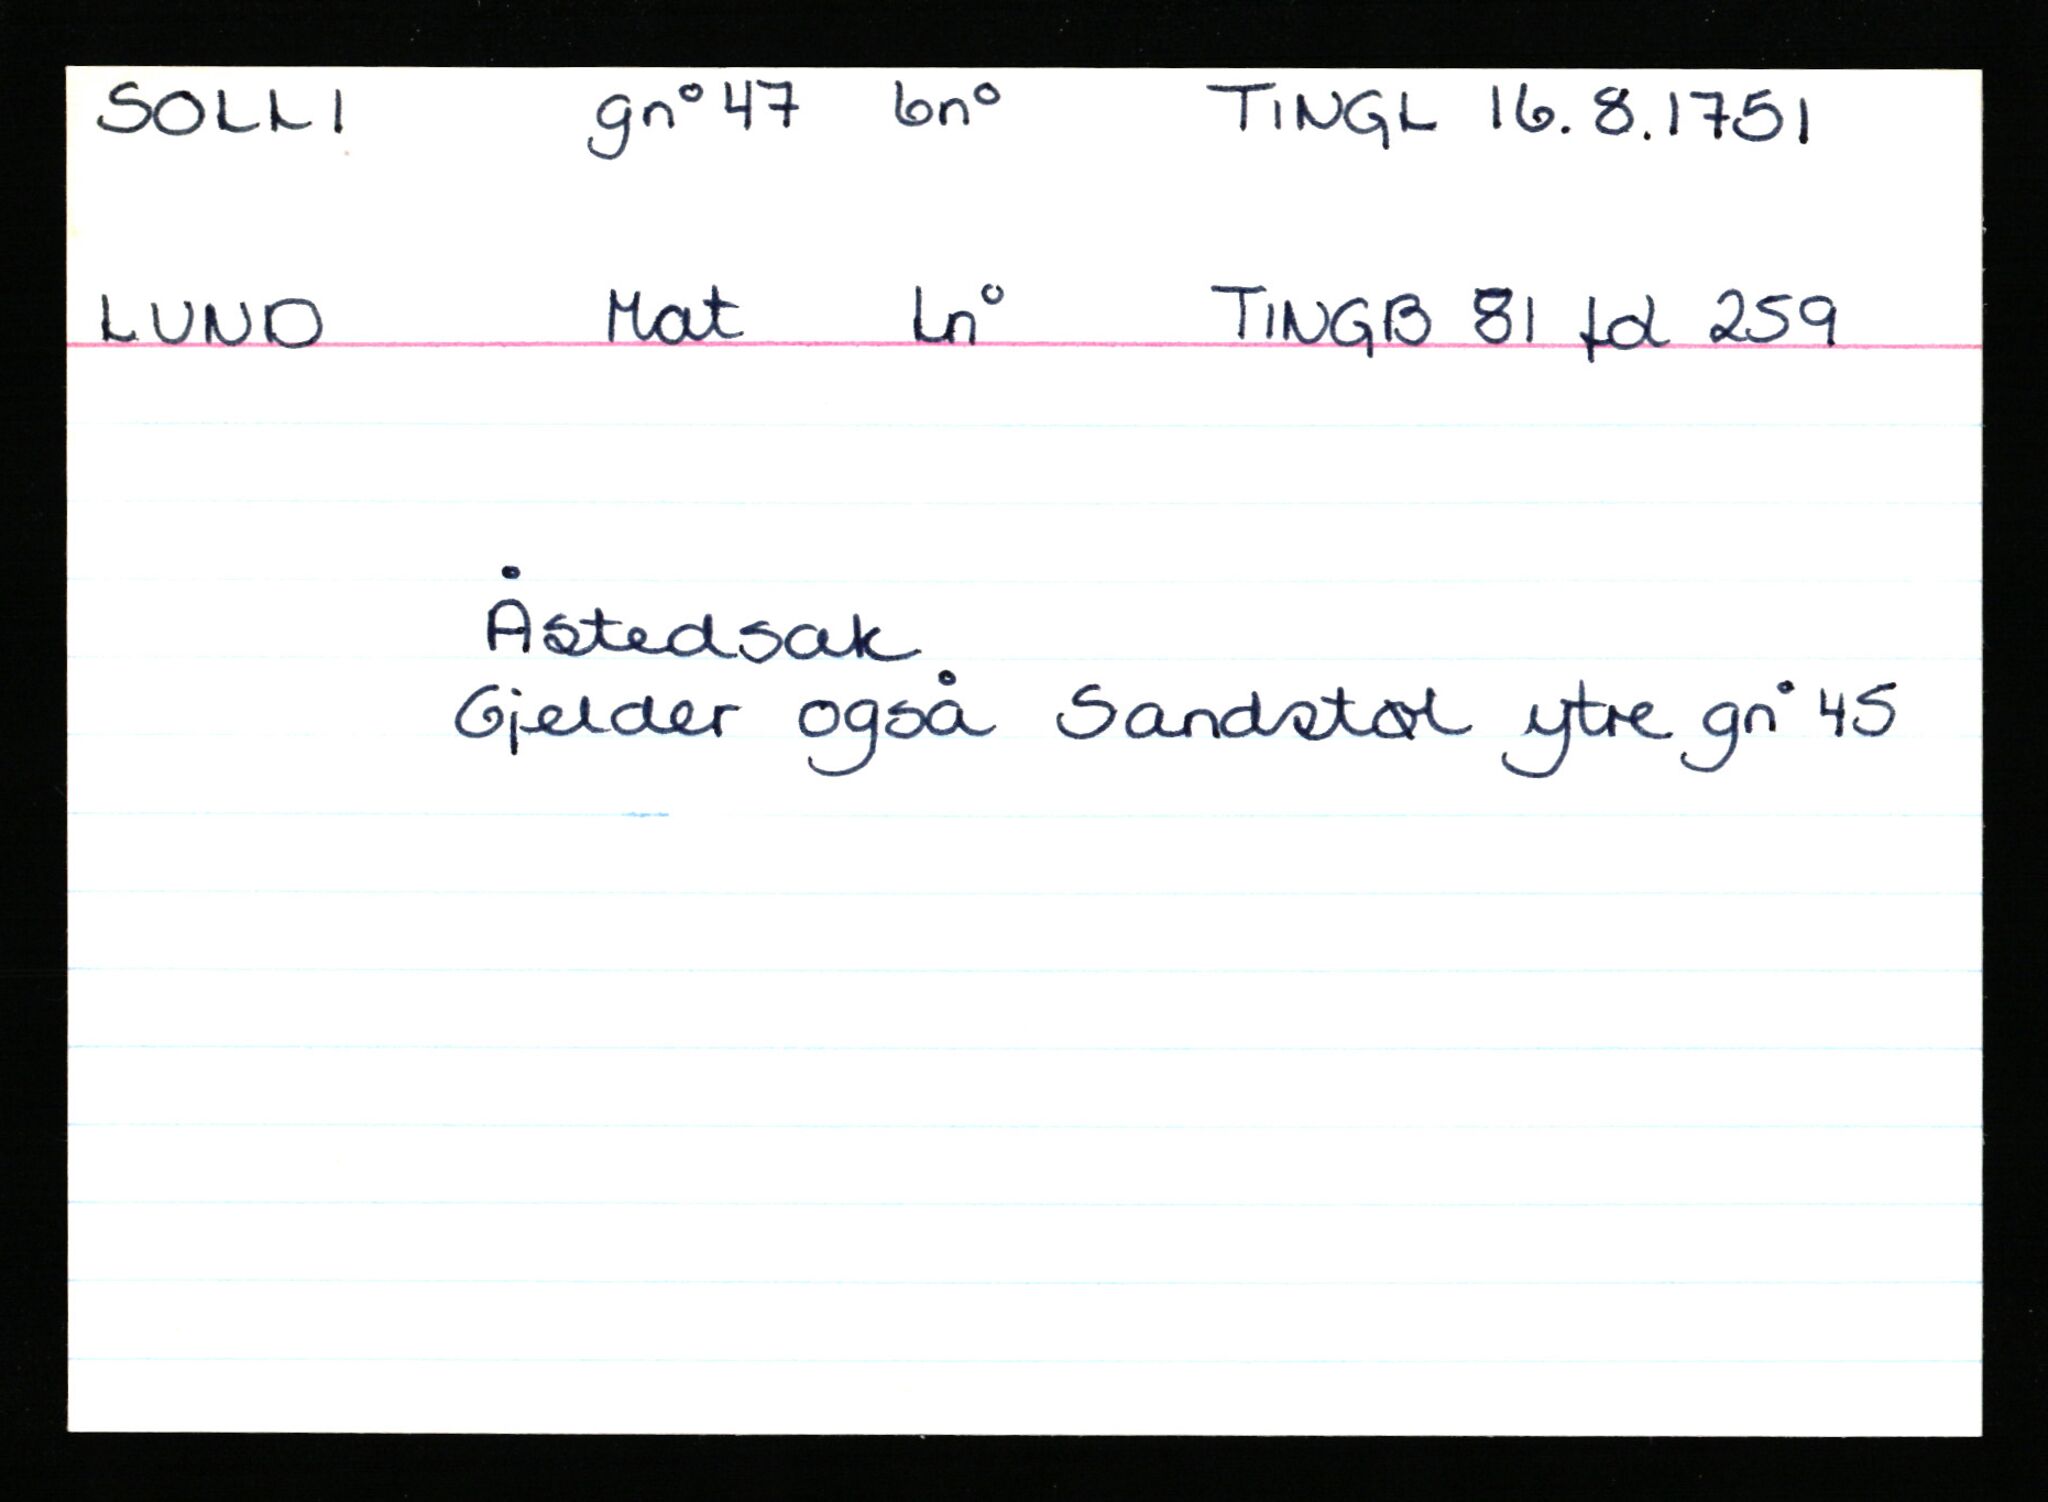 SOLLI gn° 47 bn° TINGL 16.8.1751
LUND Mat Ln° TINGB 81 fd 259
Åstedsak
Gjelder også Sandstøl ytre gn° 45